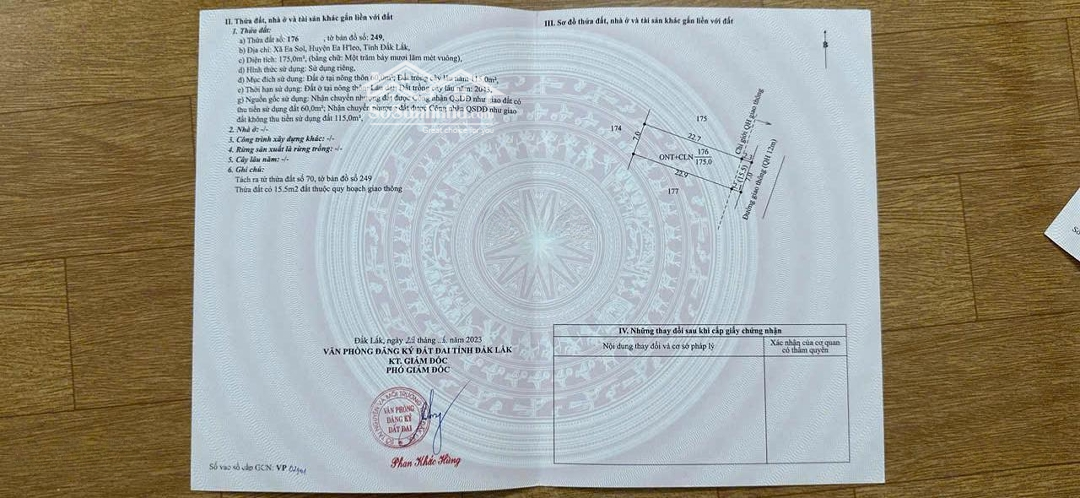 II. Thửa đất, nhà ở và tài sản khác gắn liền với đất
1. Thửa đất:
a) Thửa đất số: 176 , tờ bản đồ số: 249,
b) Địa chỉ: Xã Ea Sol, Huyện Ea H'leo, Tỉnh Đắk Lắk,
c) Diện tích: 175,0m², (bằng chữ: Một trăm bảy mươi lăm mét vuông),
d) Hình thức sử dụng: Sử dụng riêng,
đ) Mục đích sử dụng: Đất ở tại nông thôn 60,0m²; Đất trồng cây lâu năm 115,0m²,
e) Thời hạn sử dụng: Đất ở tại nông thôn: Lâu dài; Đất trồng cây lâu năm: 2043,
g) Nguồn gốc sử dụng: Nhận chuyển nhượng đất được Công nhận QSDĐ như giao đất có
thu tiền sử dụng đất 60,0m²; Nhận chuyển nhượng đất được Công nhận QSDĐ như giao
đất không thu tiền sử dụng đất 115,0m²,
2. Nhà ở: -/-
3. Công trình xây dựng khác: -/-
4. Rừng sản xuất là rừng trồng: -/-
5. Cây lâu năm: -/-
6. Ghi chú:
Tách ra từ thửa đất số 70, tờ bản đồ số 249
Thửa đất có 15.5m2 đất thuộc quy hoạch giao thông
Đắk Lắk, ngày tháng năm 2023
VĂN PHÒNG ĐĂNG KÝ ĐẤT ĐAI TỈNH ĐẮK LẮK
KT. GIÁM ĐỐC
PHÓ GIÁM ĐỐC
VĂN PHÒNG
ĐĂNG KÝ
ĐẤT ĐAI
Phan Khắc Hùng
Số vào sổ cấp GCN: VP
III. Sơ đồ thửa đất, nhà ở và tài sản khác gắn liền với đất
B
175
174
7.0
22.7
ONT+CLN 176
175,0
22.9
177
(15.5)
7.0
Chỉ giới QH giao thông
Đường giao thông (QH 12m)
IV. Những thay đổi sau khi cấp giấy chứng nhận
Nội dung thay đổi và cơ sở pháp lý
Xác nhận của cơ quan
có thẩm quyền